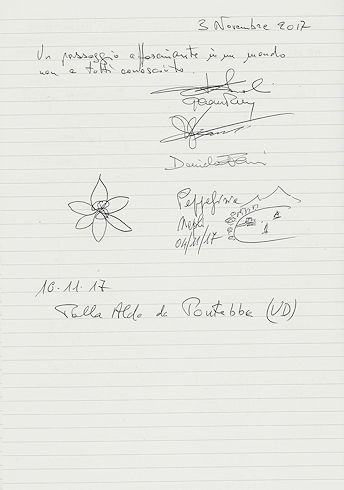 3 Novembre 2017
Un passaggio affascinante in un mondo
non a tutti conosciuto.
Daniele
Napoli
04/11/17
10.11.17
Palla Aldo da Pontebba (UD)